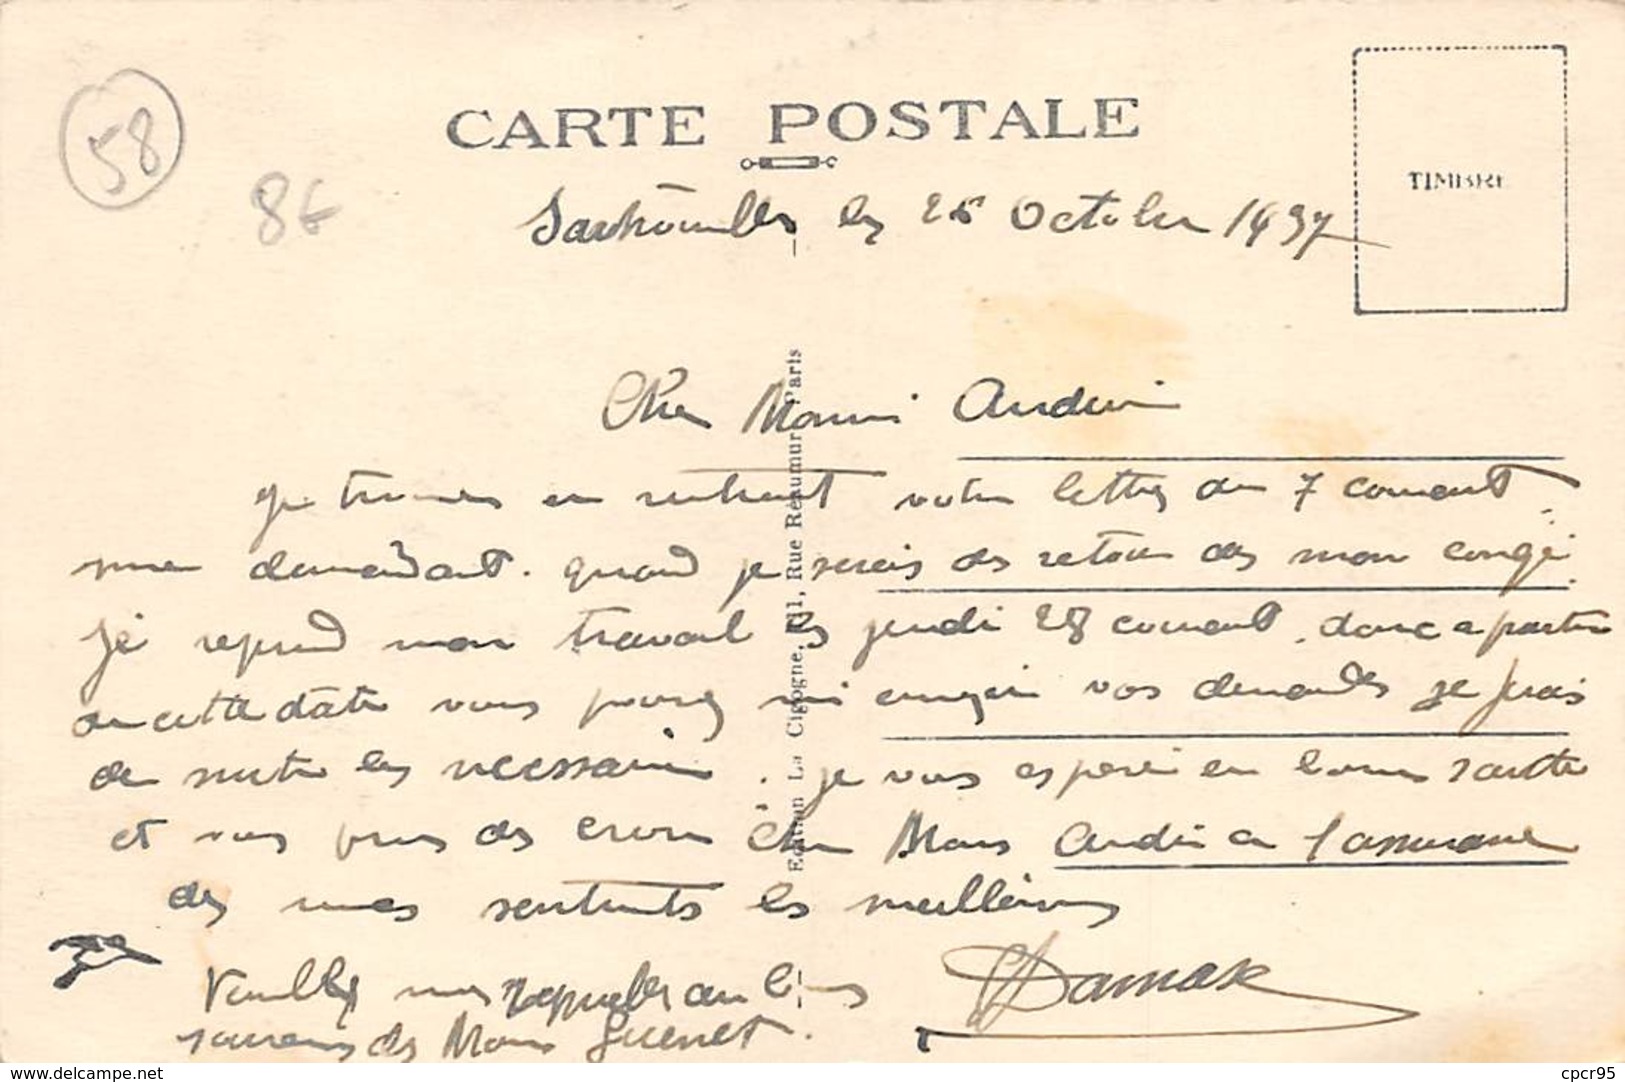 58
8€
CARTE POSTALE
TIMBRE
Sartrouville le 26 Octobre 1937
Cher Monsi Audin
je trouve en rentrant votre lettre du 7 courant
me demandant. quand je serais de retour de mon congé
je reprend mon travail le jeudi 28 courant, donc a partir
de cette date vous pouvez mi envoyer vos demandes je ferais
de suite le nécessaire. je vous espère en bonne santée
et vous pries de croire Cher Mons Audin a l'assurance
de mes sentiments les meilleurs
Damak
Veuillez me rappeller au bons
souvenir de Mons Guenet.
Edition La Cigogne, 111, Rue Réaumur Paris
delcampe.net
cpcr95